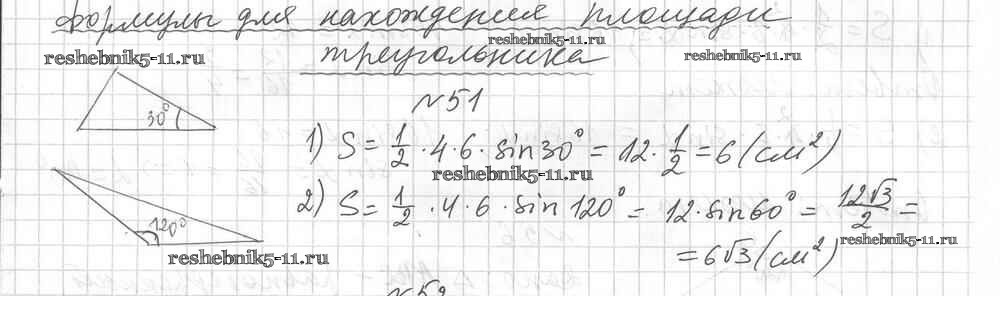 Формулы для нахождения площади
треугольника
reshebnik5-11.ru
reshebnik5-11.ru
reshebnik5-11.ru
№51
30°
1) S = 1/2 · 4 · 6 · sin30° = 12 · 1/2 = 6 (см²)
reshebnik5-11.ru
120°
2) S = 1/2 · 4 · 6 · sin 120° = 12 · sin60° = 12√3/2 =
= 6√3 (см²)
reshebnik5-11.ru
reshebnik5-11.ru
№52